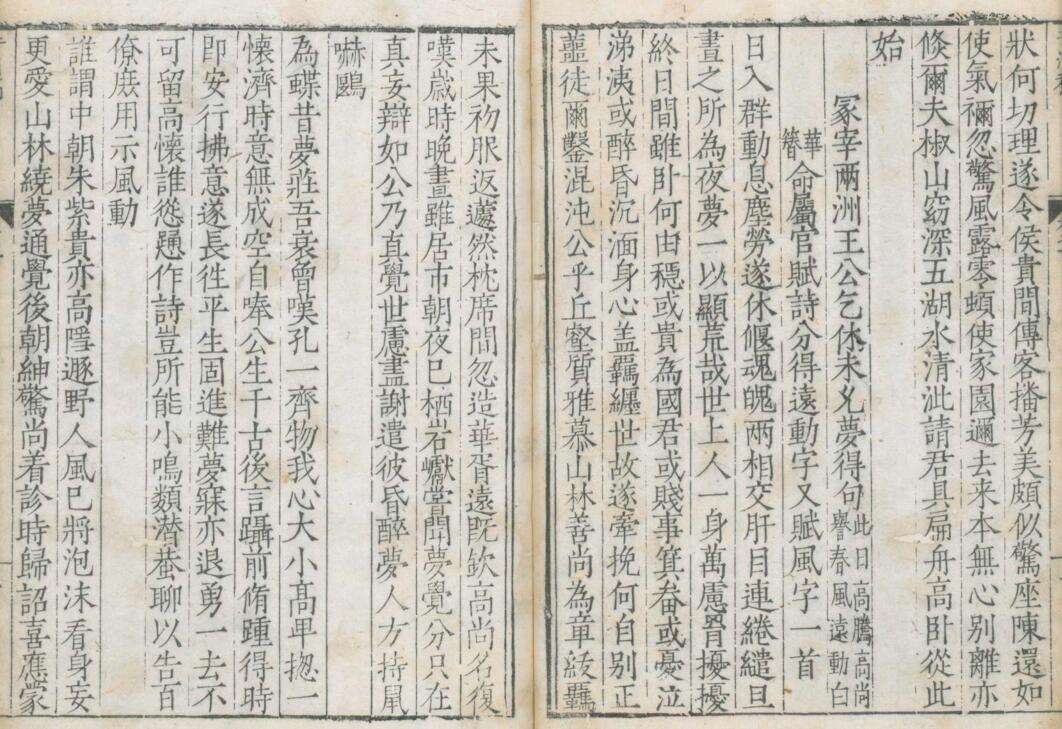 狀何切理遂令侯貴間傳客播芳美頗似驚座陳還如
使氣禰忽驚風露零頓使家園邇去来本無心別離亦
倐爾夫椒山窈深五湖水清泚請君具扁舟高卧從此
始
冡宰兩洲王公乞休未乆夢得句此日高騰高尚譽春風遠動白
華簪命屬官賦詩分得遠動字又賦風字一首
日入群動息塵勞遂休偃魂魄兩相交肝目連綣繾旦
晝之所為夜夢一以顯荒哉世上人一身萬慮胷擾擾
終日間雖卧何由穏或貴為國君或賤事箕畚或憂泣
涕洟或醉昏沉湎身心盖羈纏世故遂牽挽何自别正
虀徒爾鑿混沌公乎丘壑質雅慕山林善尚為章紱羈
未果初服返蘧然枕席間忽造華胥遠既欽高尚名復
嘆歳時晚晝雖居市朝夜已栖岩巘嘗聞夢覺分只在
真妄辯如公乃真覺世慮盡謝遣彼昏醉夢人方持鼠
嚇鷗
為蝶昔夢莊吾衰曾嘆孔一齊物我心大小髙卑揔一
懐濟時意無成空自唪公生千古後言躡前脩踵得時
即安行拂意遂長徃平生固進難夢寐亦退勇一去不
可留高懐誰慫慂作詩豈所能小鳴類潜蛬聊以告百
僚庻用示風動
誰謂中朝朱紫貴亦高隱遯野人風已將泡沫看身妄
更愛山林繞夢通覺後朝紳驚尚着診時歸詔喜應蒙